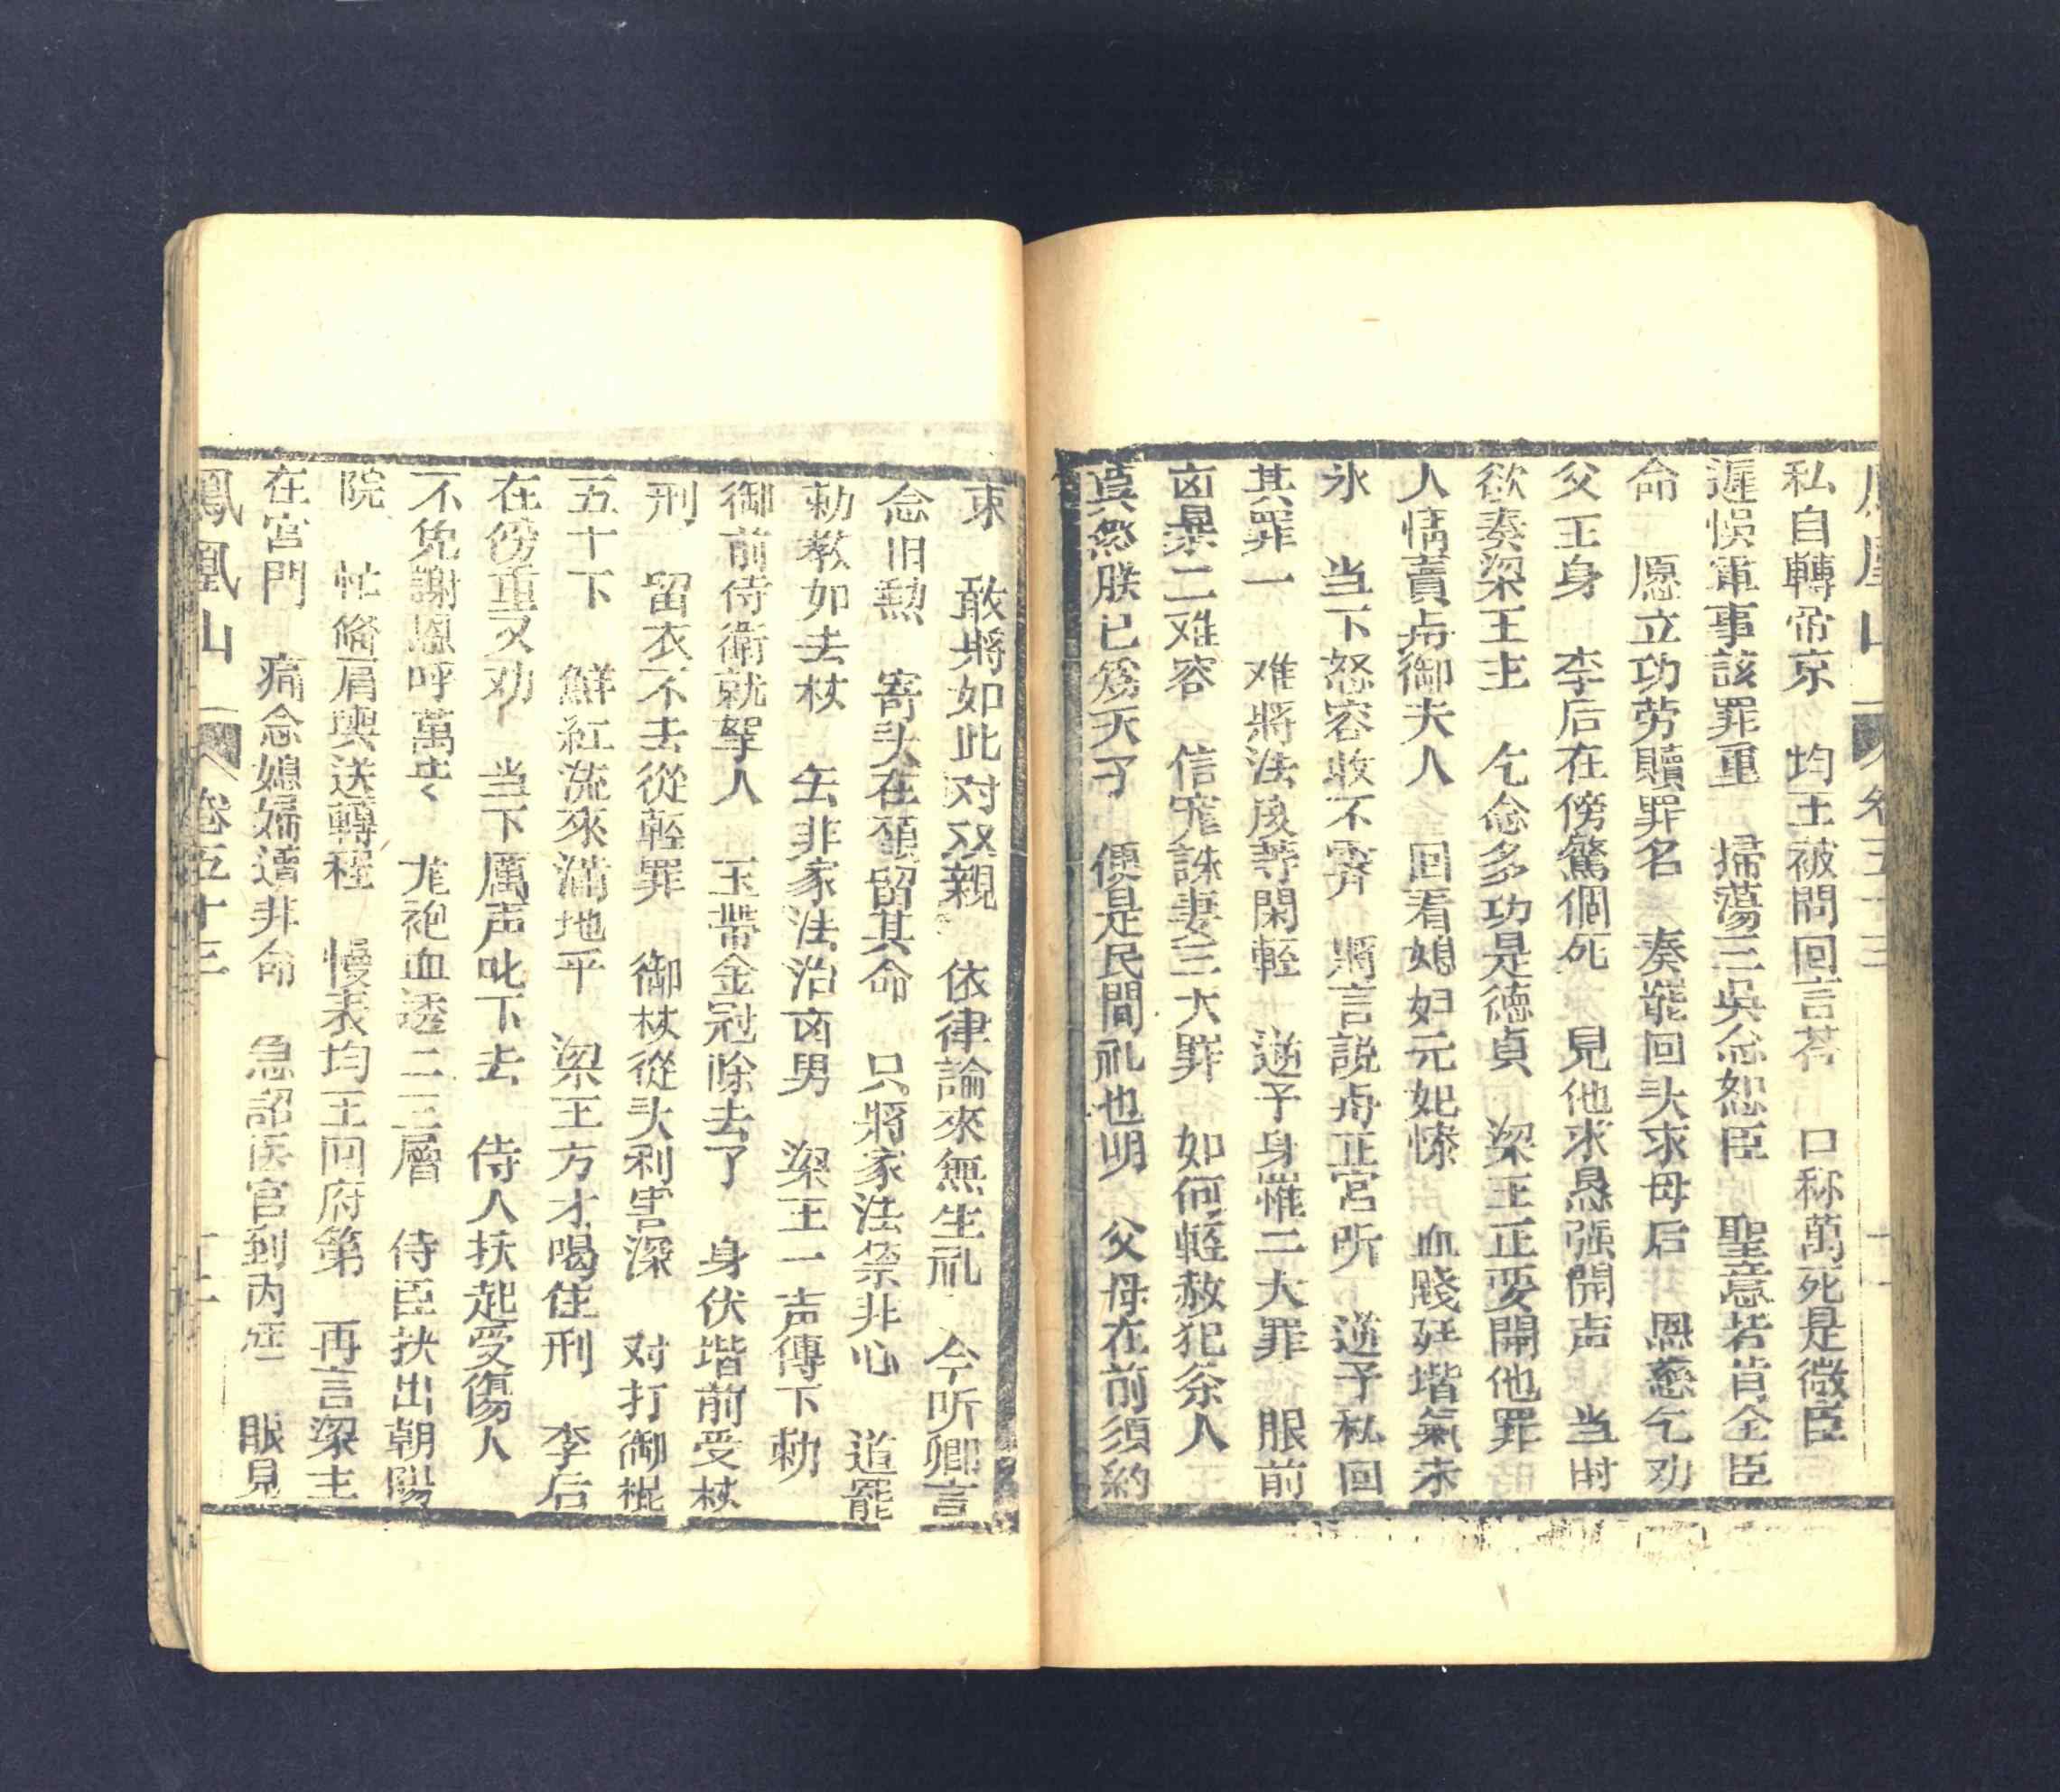 鳳凰山 卷五十三 十一
私自轉帝京 均王被問回言荅 口称萬死是微臣
遲悞軍事該罪重 掃蕩三吳忿恕臣 聖意若肯全臣
命 愿立功劳贖罪名 奏罷回头求母后 恩慈乞劝
父王身 李后在傍驚個死 見他求恳强開声 当时
欲奏梁王主 乞念多功是德貞 梁王正要開他罪
人情賣与御夫人 回看媳妇元妃惨 血賤廷堦氣未
氷 当下怒容收不霽 將言説与正宮所 逆子私回
其罪一 难將法度等閑輕 逆子身罹二大罪 眼前
凶暴二难容 信寃誅妻三大罪 如何輕赦犯条人
莫然朕已爲天子 便是民間礼也明 父母在前須約
束 敢將如此对双親 依律論來無生礼 今听卿言
念旧勲 寄头在頸留其命 只將家法禁非心 道罷
勅教如去杖 去非家法治凶男 梁王一声傳下勅
御前侍衛就拏人 玉帶金冠除去了 身伏堦前受杖
刑 留衣不去從輕罪 御杖從头利害深 对打御棍
五十下 鮮紅流來滿地平 梁王方才喝住刑 李后
在傍重又劝 当下厲声叱下去 侍人扶起受傷人
不免謝恩呼萬歲 龙袍血透二三層 侍臣扶出朝陽
院 忙僃肩輿送轉程 慢表均王回府第 再言梁主
在宮門 痛念媳婦遭非命 急詔医官到内庭 眼見
鳳凰山 卷五十三 十二